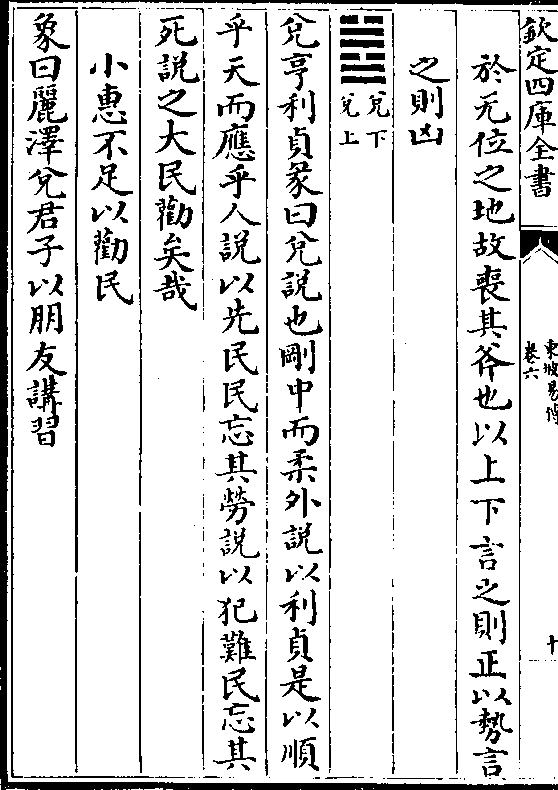 欽定四庫全書
東坡易傳
卷六
十
於无位之地故喪其斧也以上下言之則正以勢言
之則凶
䷹
兌下
兌上
兌亨利貞彖曰兌說也剛中而柔外說以利貞是以順
乎天而應乎人說以先民民忘其勞說以犯難民忘其
死說之大民勸矣哉
小惠不足以勸民
象曰麗澤兌君子以朋友講習